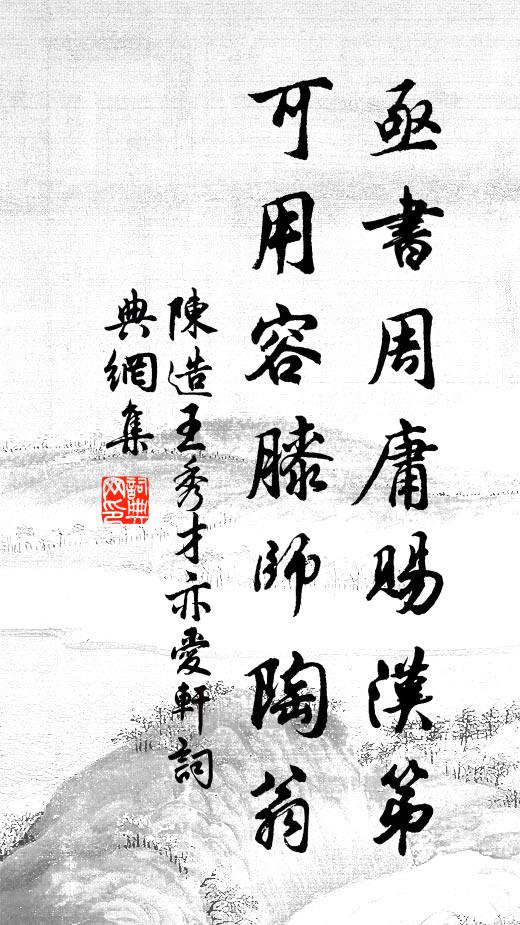 亟書周庸賜漢第
可用容膝師陶翁
陳造王秀才亦愛軒詞
典網集
詞典
网印